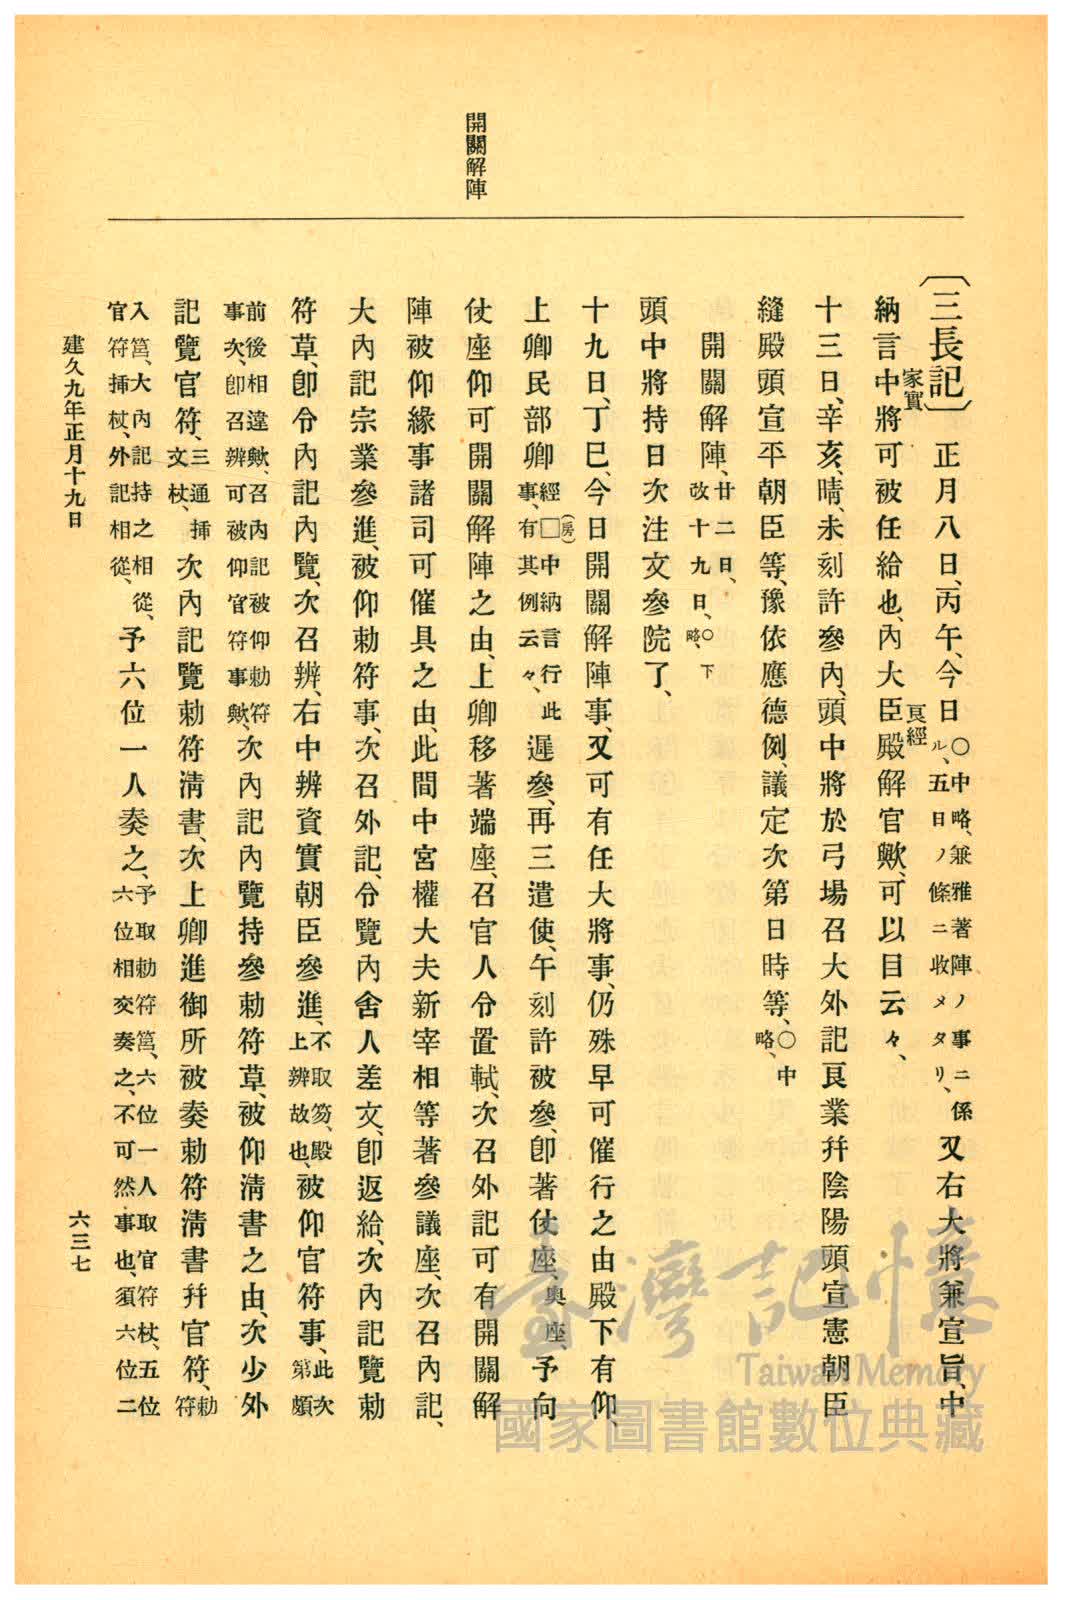 開關解陣
〔三長記〕正月八日、丙午、今日〇中略、兼雅著陣ノ事ニ係ル、五日ノ條ニ收メタリ、又右大將兼宣旨、中
納言中將家實可被任給也、內大臣殿良經解官歟、可以目云々、
十三日、辛亥、晴、未刻許參內、頭中將於弓場召大外記良業幷陰陽頭宣憲朝臣
縫殿頭宣平朝臣等、豫依應德例、議定次第日時等、〇中略、
開關解陣、廿二日、改十九日、〇下略、
頭中將持日次注文參院了、
十九日、丁巳、今日開關解陣事、又可有任大將事、仍殊早可催行之由殿下有仰、
上卿民部卿經□(房)中納言行此事、有其例云々、遲參、再三遣使、午刻許被參、卽著仗座、奧座、予向
仗座仰可開關解陣之由、上卿移著端座、召官人令置軾、次召外記可有開關解
陣被仰緣事諸司可催具之由、此間中宮權大夫新宰相等著參議座、次召內記、
大內記宗業參進、被仰勅符事、次召外記、令覽內舍人差文、卽返給、次內記覽勅
符草、卽令內記內覽、次召辨、右中辨資實朝臣參進、不取笏、殿上辨故也、被仰官符事、此次第頗
前後相違歟、召內記被仰勅符事次、卽召辨可被仰官符事歟、次內記內覽持參勅符草、被仰淸書之由、次少外
記覽官符、三通挿文杖、次內記覽勅符淸書、次上卿進御所被奏勅符淸書幷官符、勅符
入筥、大內記持之相從、官符挿杖、外記相從、予六位一人奏之、予取勅符筥、六位一人取官符杖、五位六位相交奏之、不可然事也、須六位二
建久九年正月十九日
六三七
臺灣記憶
Taiwan Memory
國家圖書館數位典藏